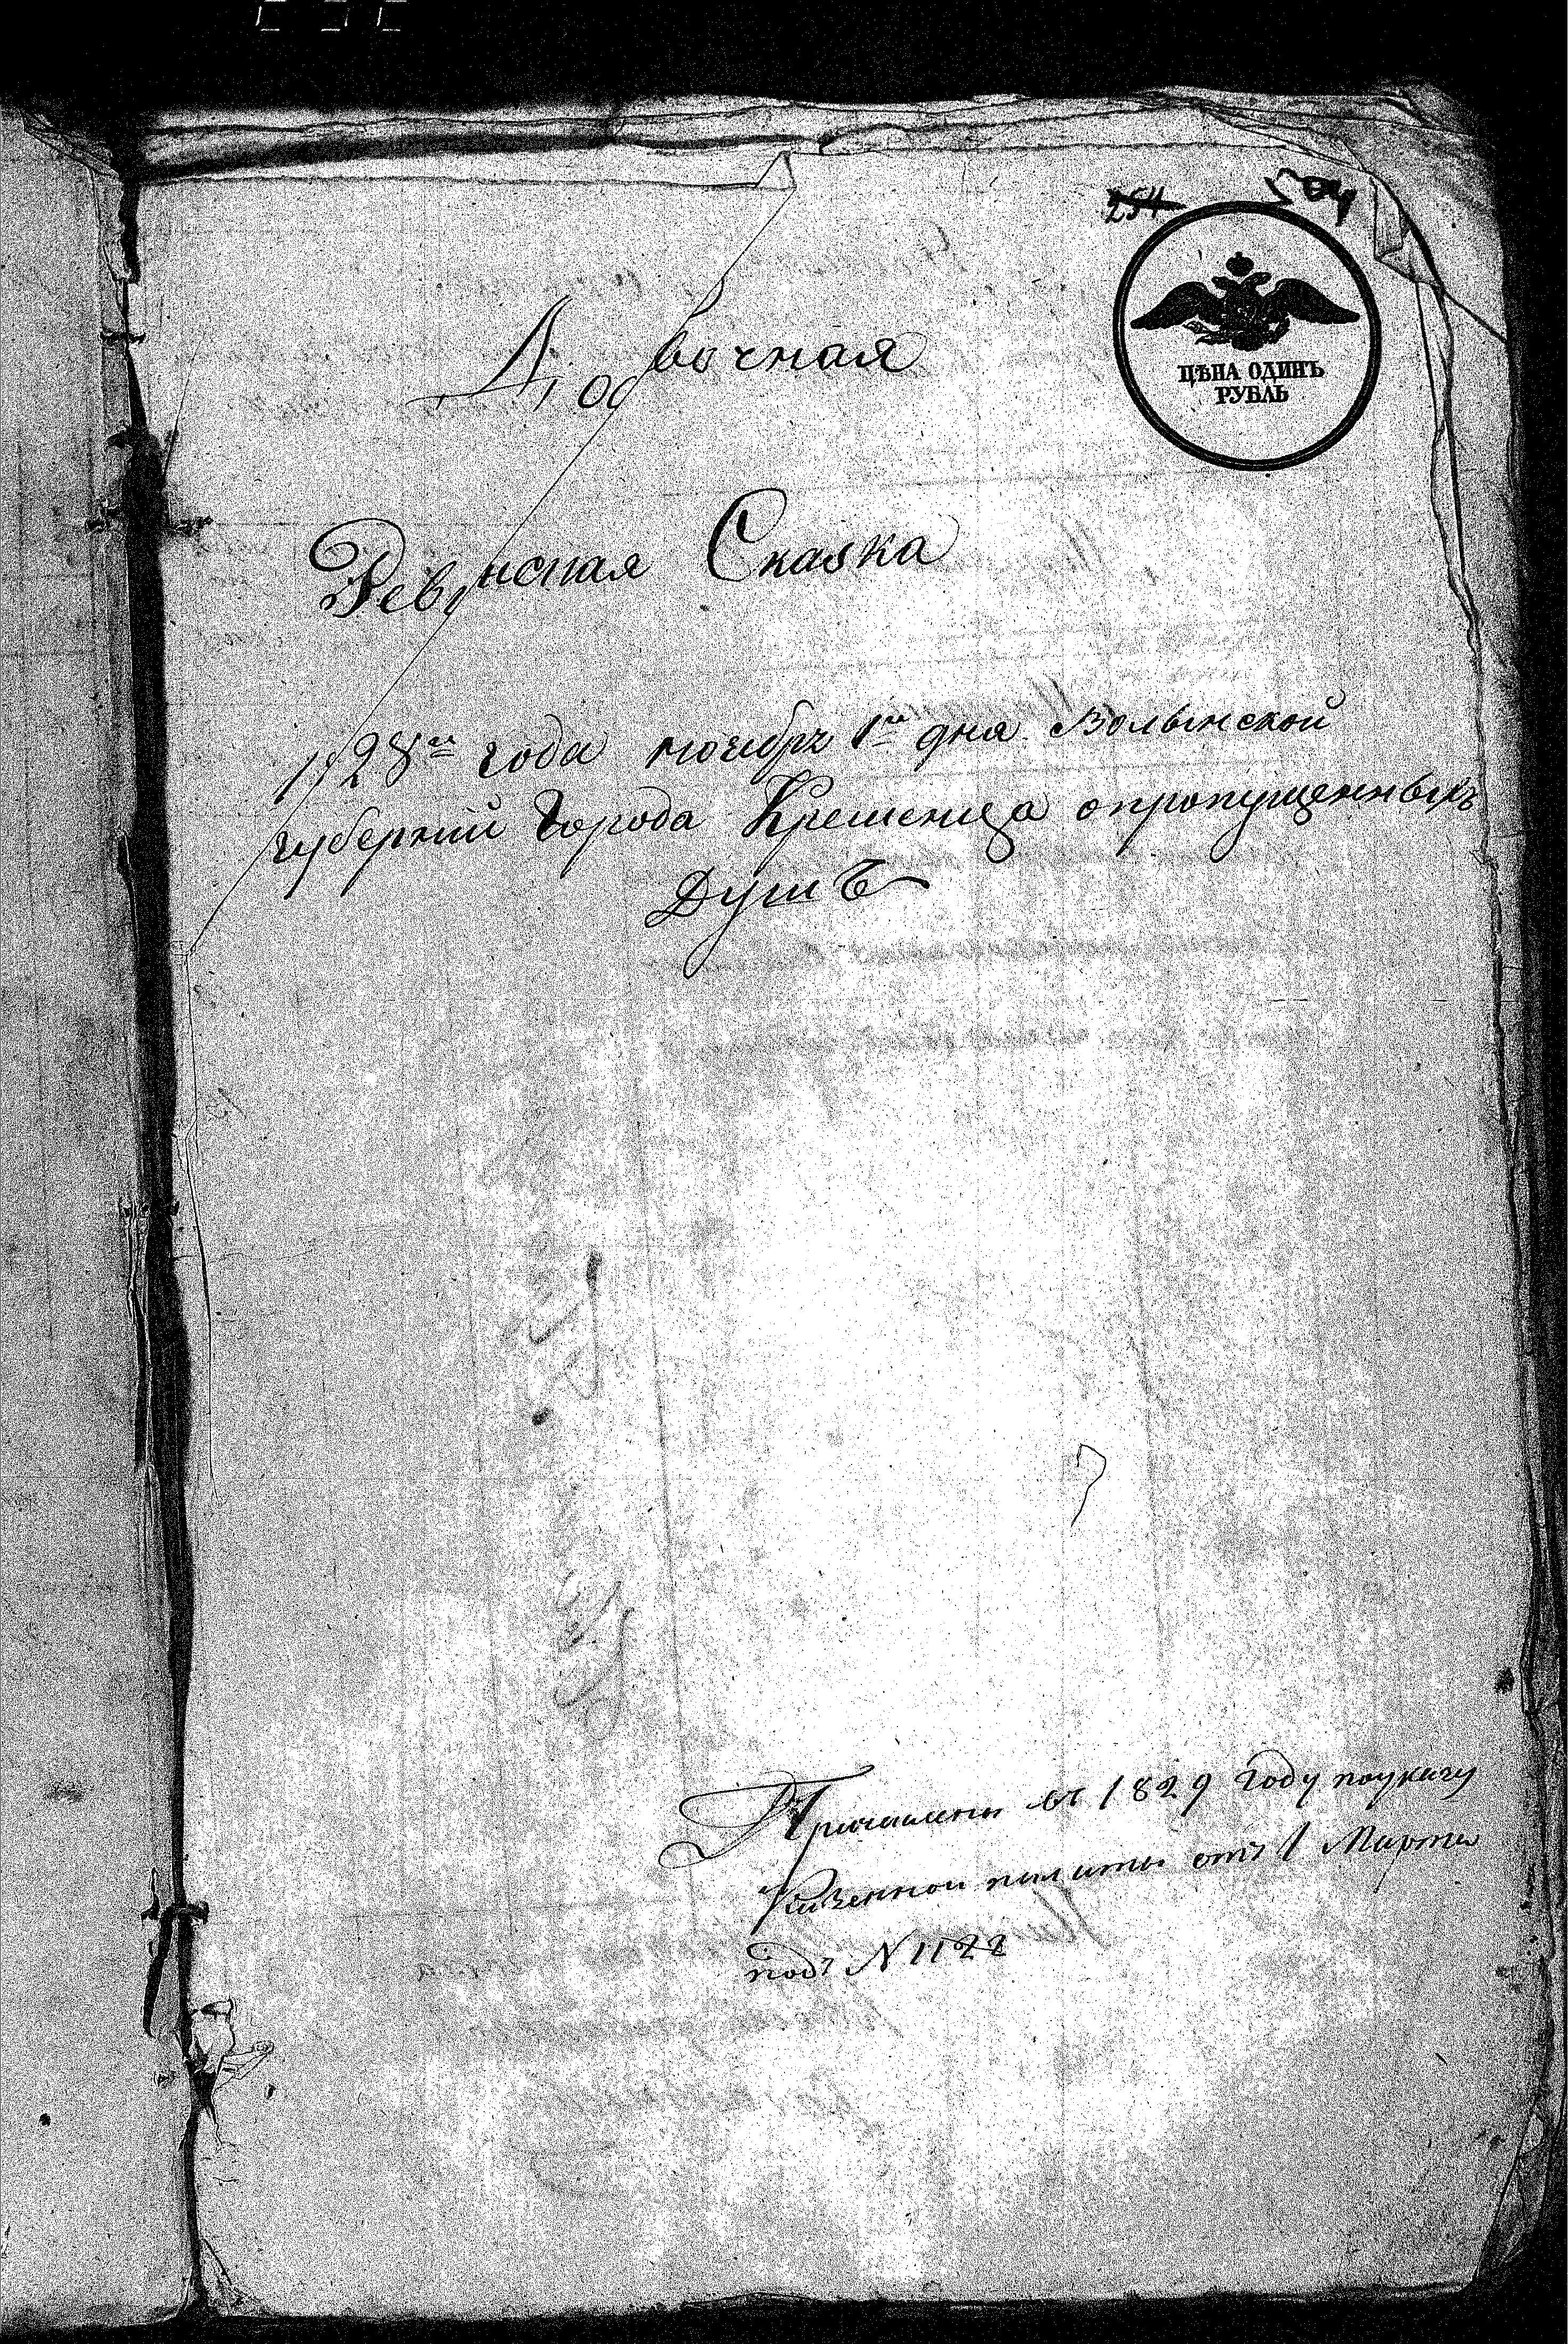 254
ЦѢНА ОДИНЪ
РУБЛЬ
вочная
Ревизская Сказка
1828го года ноября 1го дня Волынской
губернии Города Кременца опропущенныхъ
Душъ
Причислены въ 1829 году поуказу
Казенной палаты отъ 1 Марта
подъ N 1122